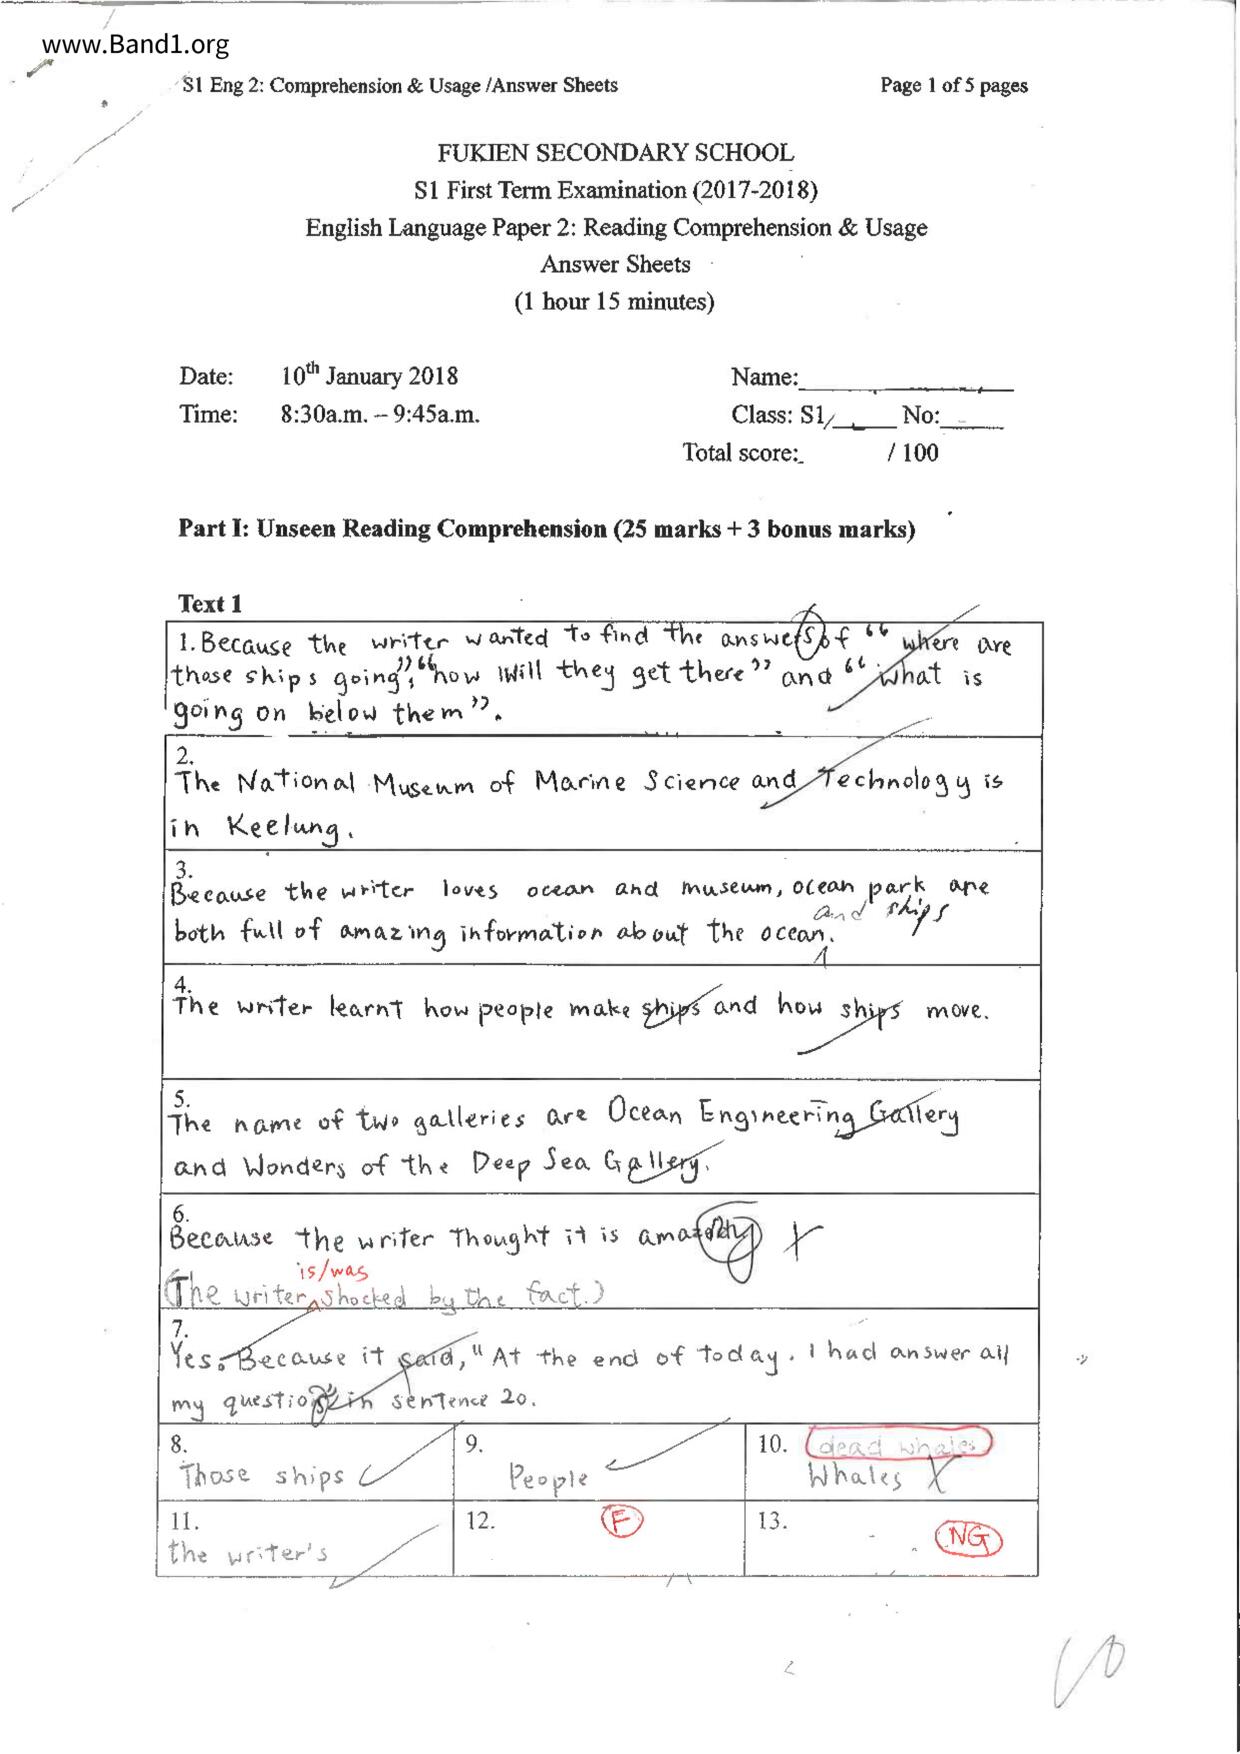 www.Band1.org
S1 Eng 2: Comprehension & Usage /Answer Sheets Page 1 of 5 pages
FUKIEN SECONDARY SCHOOL
S1 First Term Examination (2017-2018)
English Language Paper 2: Reading Comprehension & Usage
Answer Sheets
(1 hour 15 minutes)
Date: 10th January 2018 Name:
Time: 8:30a.m. – 9:45a.m. Class: S1/ No:
Total score: / 100
Part I: Unseen Reading Comprehension (25 marks + 3 bonus marks)
Text 1
1. Because the writer wanted to find the answers of “ where are
those ships going”, “how will they get there” and “ what is
going on below them”.
2.
The National Museum of Marine Science and Technology is
in Keelung.
3.
Because the writer loves ocean and museum, ocean park are
and ships
both full of amazing information about the ocean.
4.
The writer learnt how people make ships and how ships move.
5.
The name of two galleries are Ocean Engineering Gallery
and Wonders of the Deep Sea Gallery.
6.
Because the writer thought it is
is/was
(The writer shocked by the fact.)
7.
Yes. Because it said, "At the end of today. I had answer all
my in sentence 20.
8. 9. 10. dead whales
Those ships People Whales
11. 12. F 13. NG
the writer's